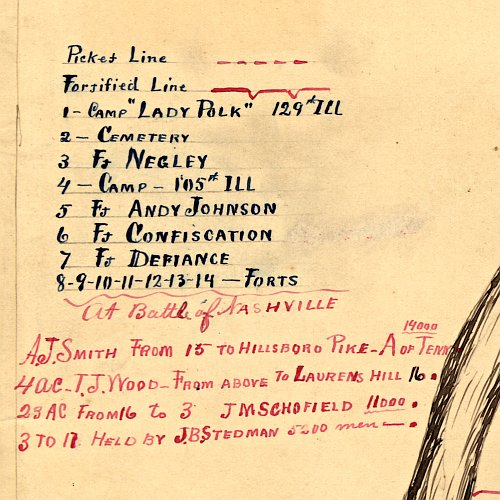 Picket Line
Fortified Line
1 - Camp "Lady Polk" 129th Ill
2 - Cemetery
3 Ft Negley
4 - Camp - 105th Ill
5 Ft Andy Johnson
6 Ft Confiscation
7 Ft Defiance
8-9-10-11-12-13-14 - Forts
At Battle of Nashville
14000
A.J. Smith From 15 to Hillsboro Pike - A of Tenn
4 AC - T.J. Wood - From above to Laurens Hill 16.
23 AC From 16 to 3 J M Schofield 11000.
3 to 17 Held by J.B. Stedman 5200 men -.